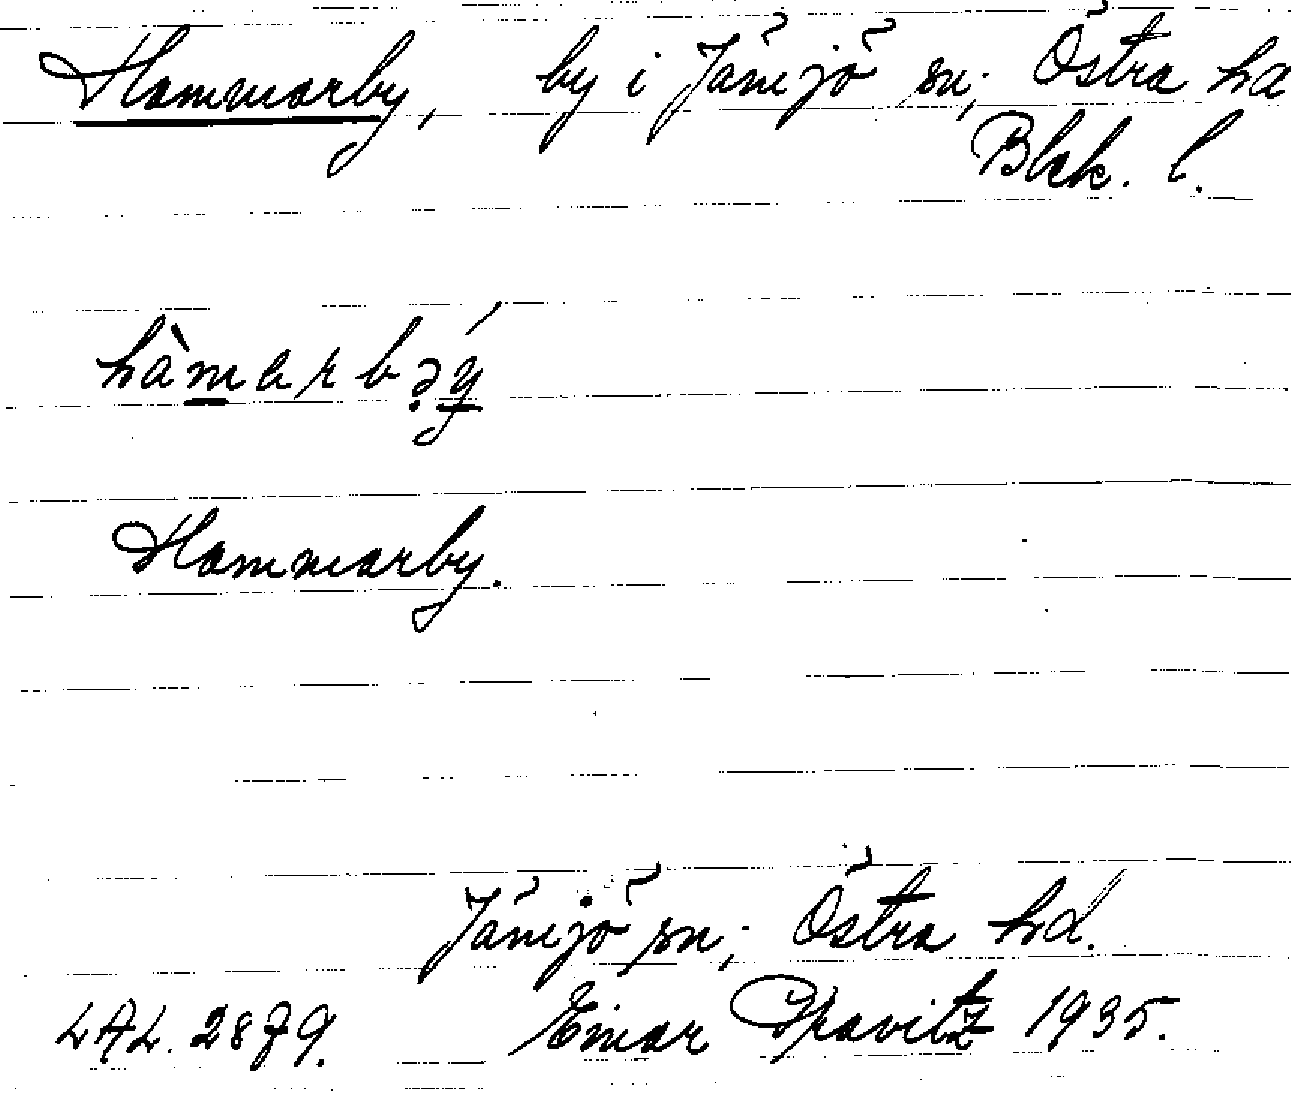 Hammarby, by i Jämjö sn; Östra hd
Blek. l.
hàmarbə̣ý
Hammarby.
Jämjö sn; Östra hd.
LAL. 2879. Einar Spavitz 1935.